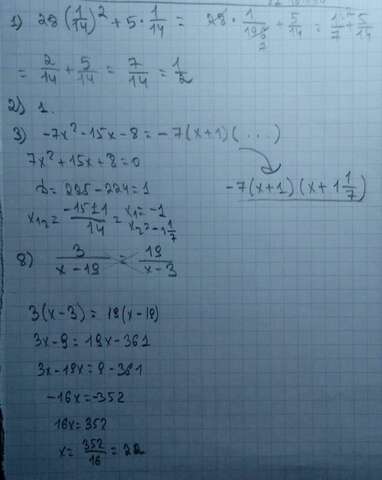 1) 28(1/14)² + 5·1/14 = 28·1/196 + 5/14 = 1/7 + 5/14
= 2/14 + 5/14 = 7/14 = 1/2
2) 1.
3) -7x²-15x-8 = -7(x+1)(...)
7x²+15x+8=0
D=225-224=1
-7(x+1)(x+1 1/7)
x₁,₂ = (-15±1)/14 = x₁=-1
x₂=-1 1/7
8) 3/(x-19) = 19/(x-3)
3(x-3) = 19(x-19)
3x-9=19x-361
3x-19x=9-361
-16x=-352
16x=352
x=352/16=22